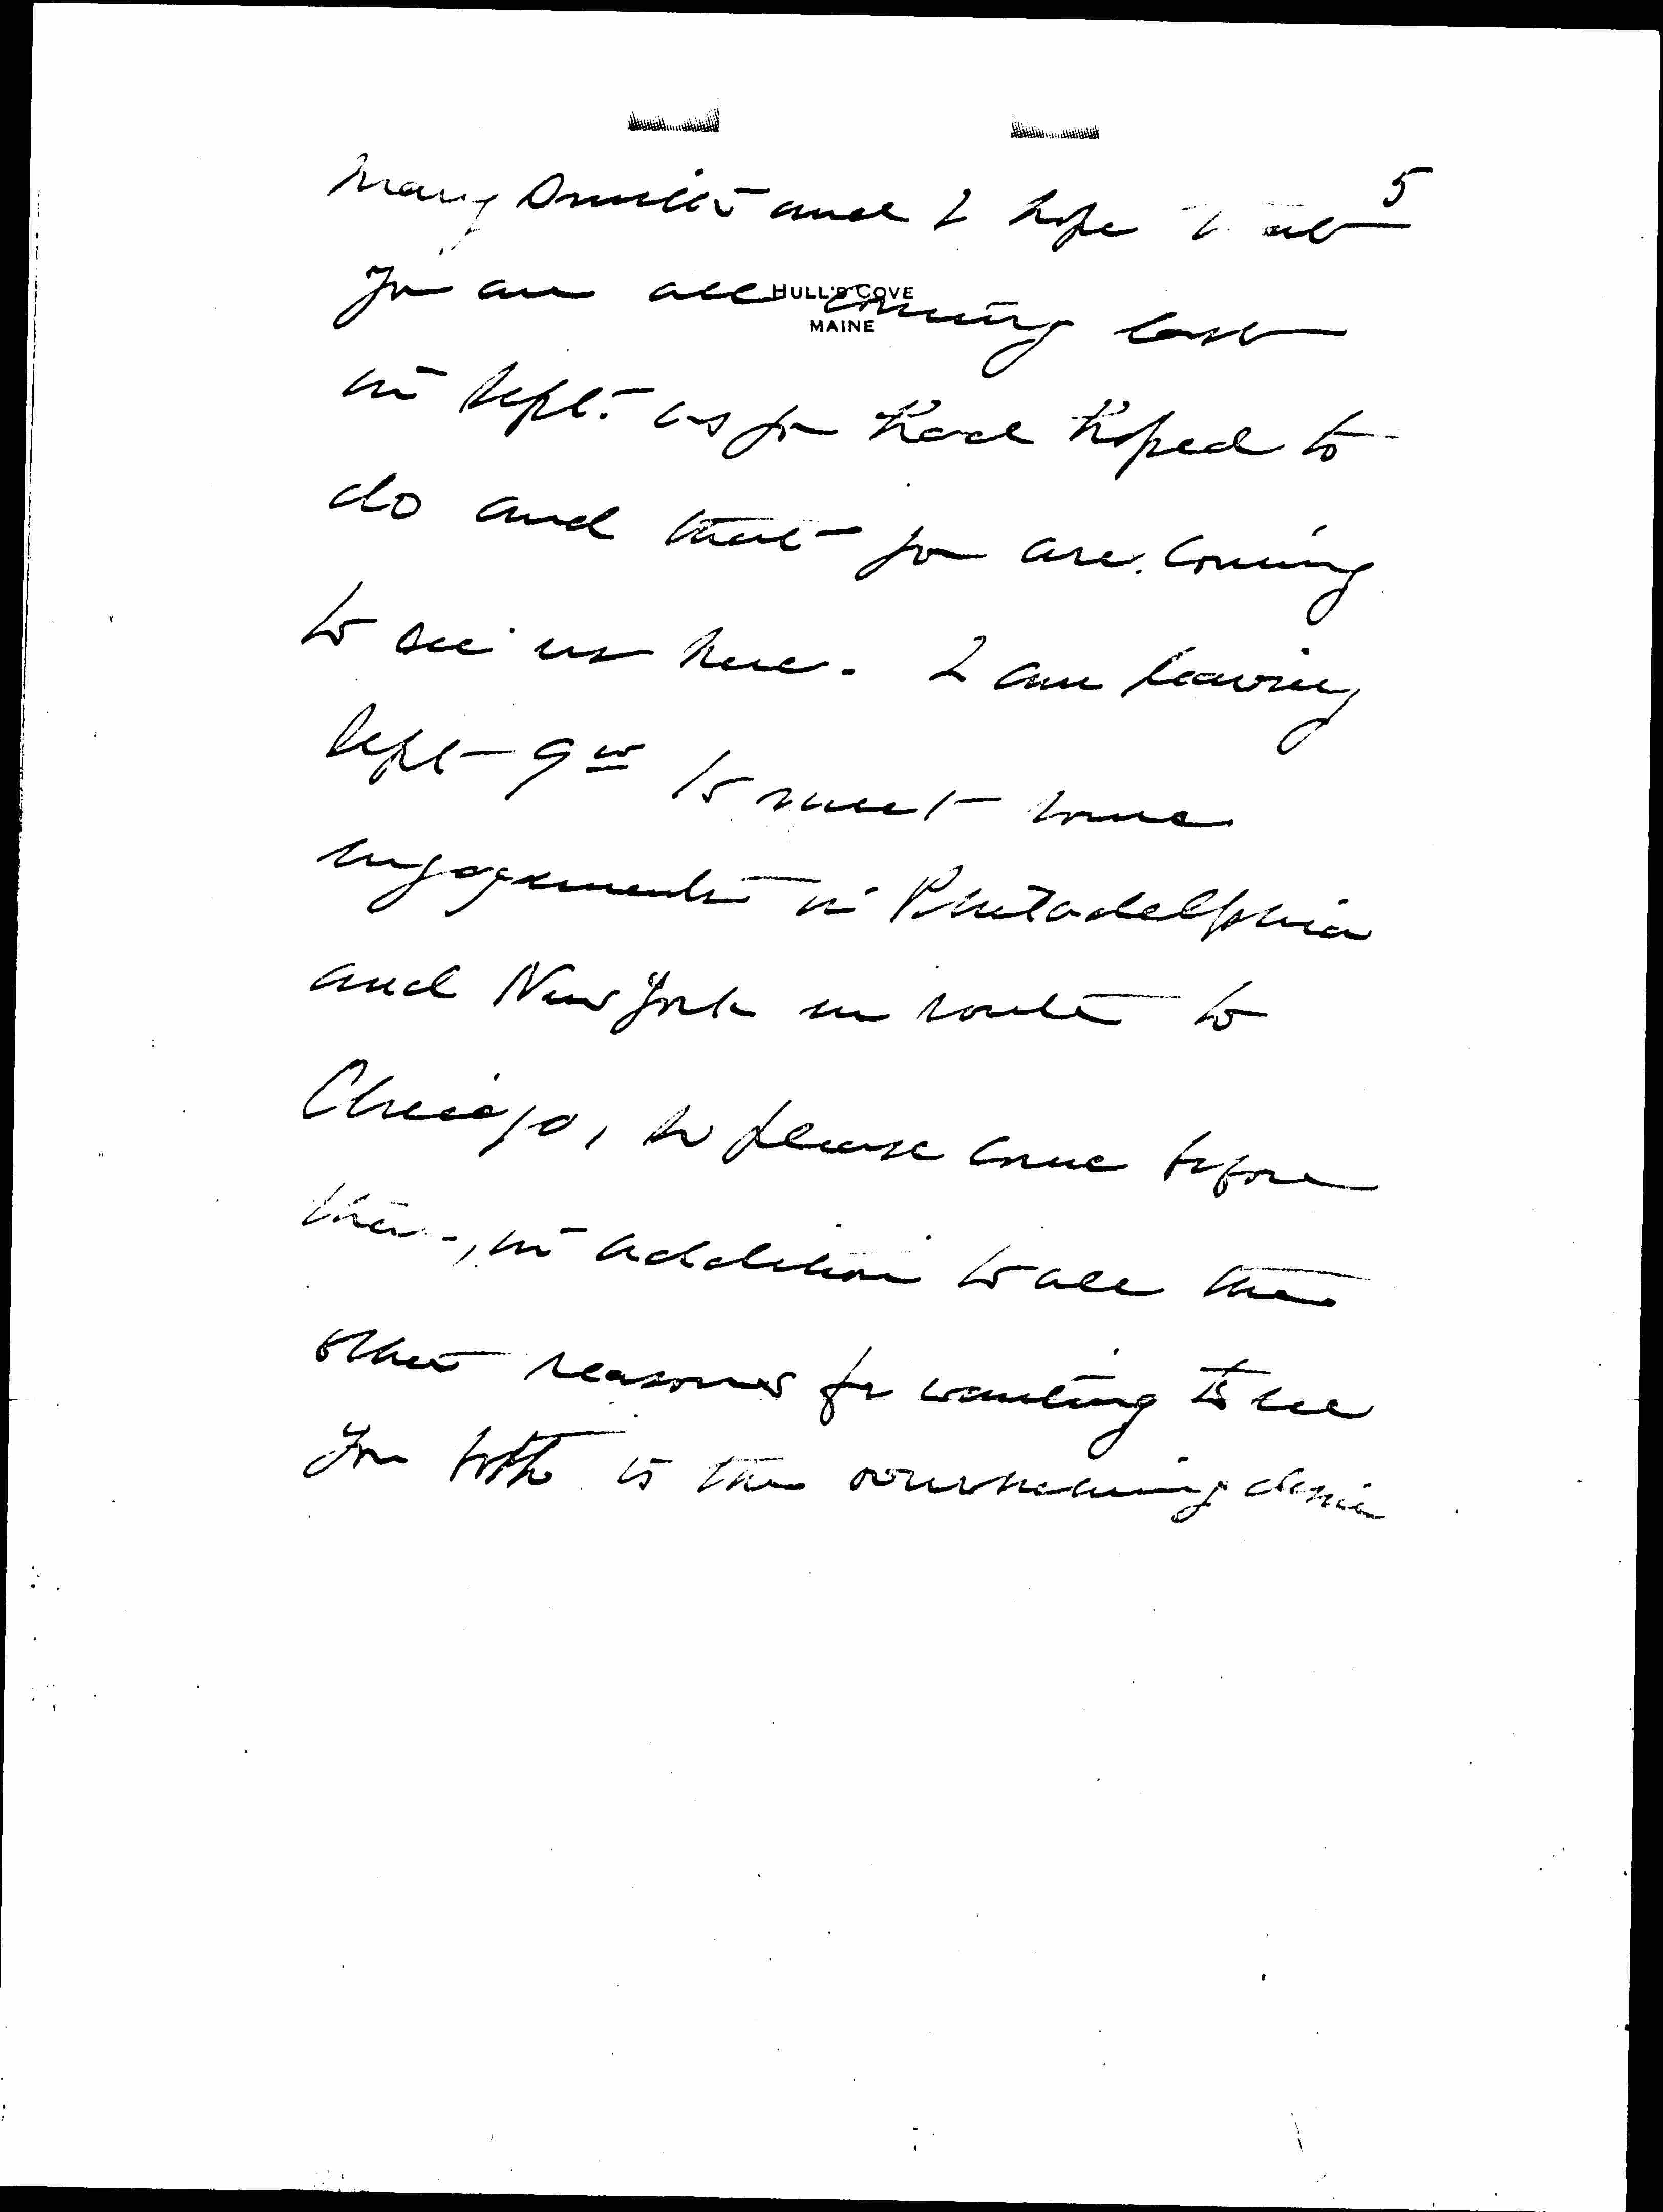 5
Mary and I hope that
HULL'S COVE
MAINE
you are all coming East
in Sept. as you had hoped to
do and that you are coming
to see us here. I am leaving
Sept 9th to meet some
engagements in Philadelphia
and New York en route to
Chicago, so please come before
then, in addition to all the
other reasons for wanting to see
you both is the overwhelming desire